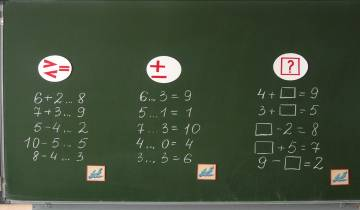 > < =
6+2...8
7+3...9
5-4...2
10-5...5
8-4...3
±
6...3=9
5...1=1
7...3=10
4...0=4
3...3=6
?
4+□=9
3+□=5
□-2=8
□+5=7
9-□=2